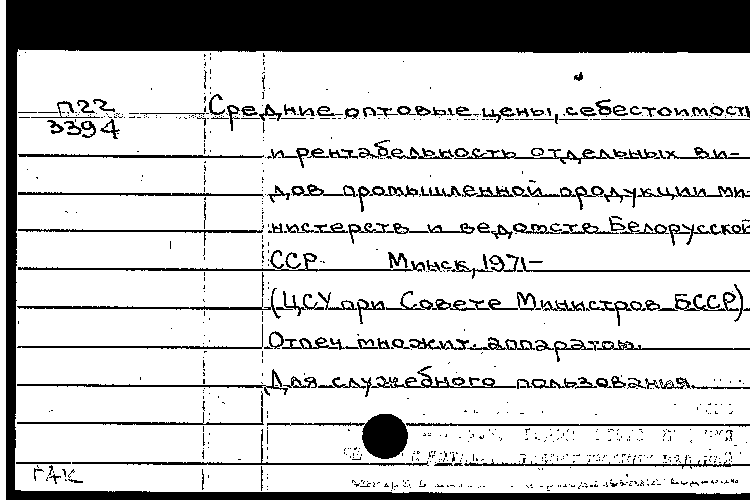 П22
3394
Средние оптовые цены, себестоимость
и рентабельность отдельных ви-
дов промышленной продукции ми-
нистерств и ведомств Белорусской
ССР. Минск, 1971-
(ЦСУ при Совете Министров БССР)
Отпеч. множит. аппаратом.
Для служебного пользования.
ГАК